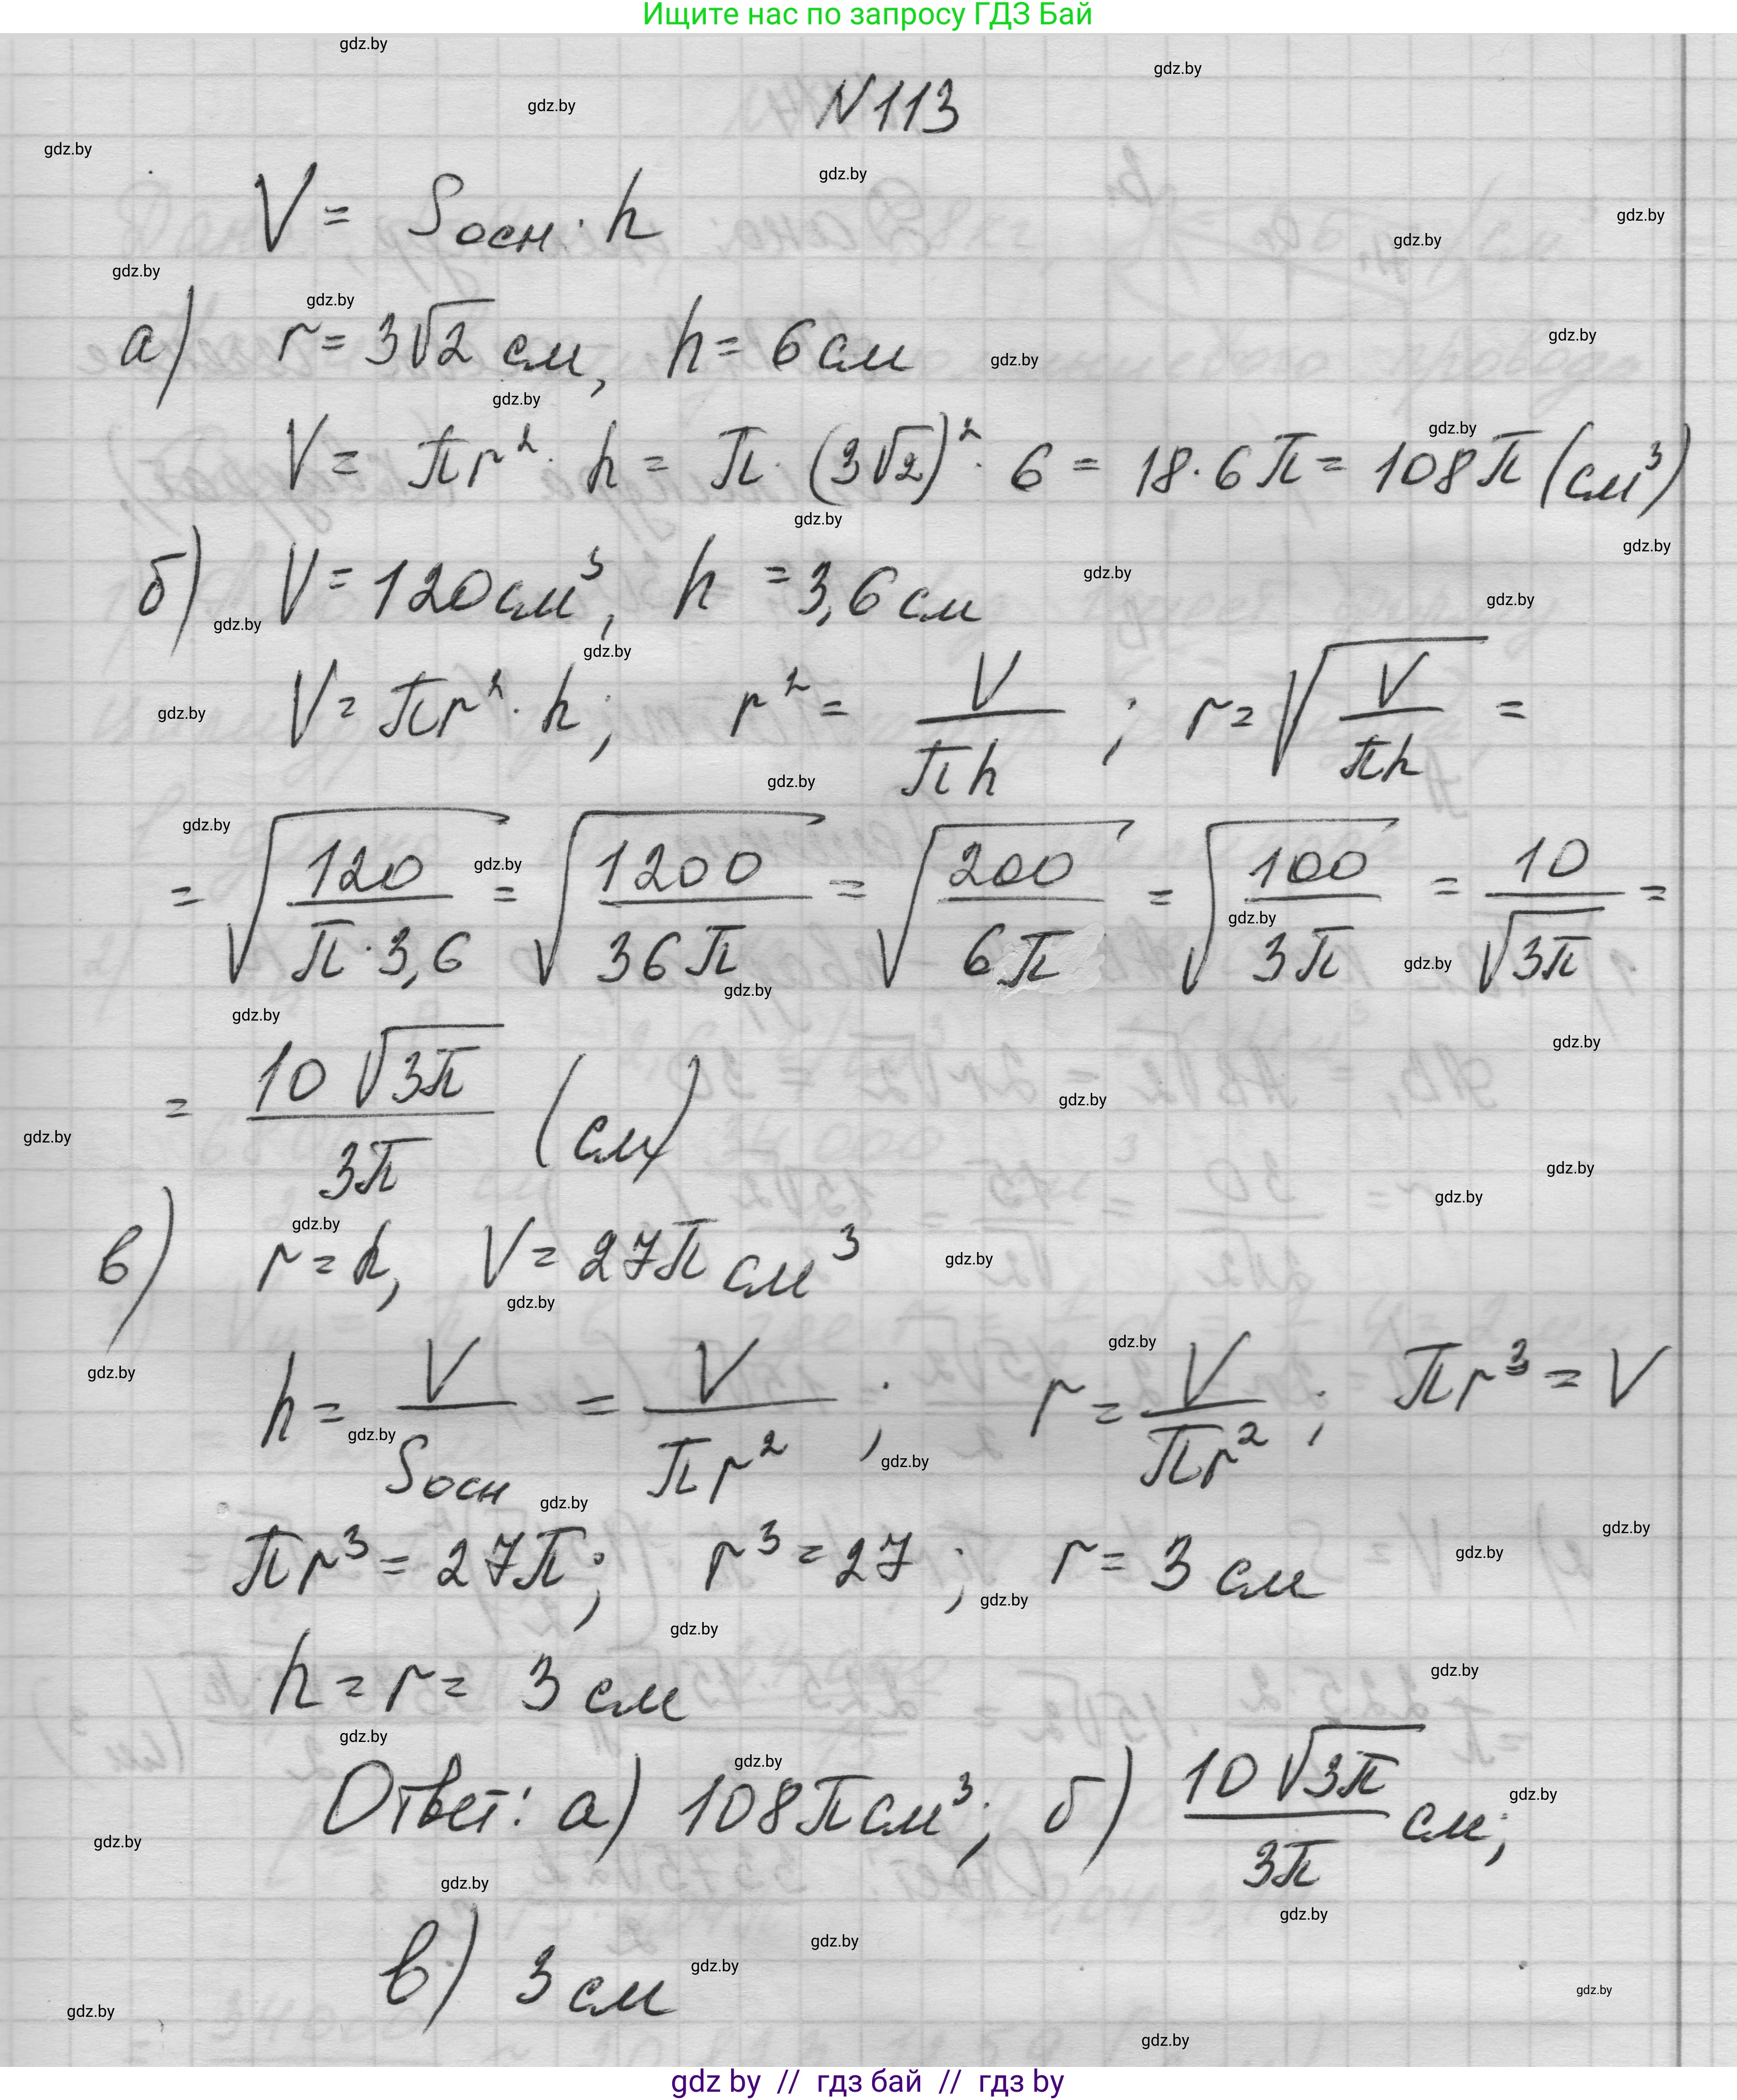 Ищите нас по запросу ГДЗ Бай
N113
V = Sосн · h
а) r = 3√2 см, h = 6 см
V = πr² · h = π · (3√2)² · 6 = 18 · 6π = 108π (см³)
б) V = 120 см³, h = 3,6 см
V = πr² · h; r² = V/πh ; r = √(V/πh) =
= √(120/π · 3,6) = √(1200/36π) = √(200/6π) = √(100/3π) = 10/√3π =
= 10√3π/3π (см)
в) r = h, V = 27π см³
h = V/Sосн = V/πr² ; r = V/πr² ; πr³ = V
πr³ = 27π; r³ = 27 ; r = 3 см
h = r = 3 см
Ответ: а) 108π см³; б) 10√3π/3π см;
в) 3 см
gdz by // гдз бай // гдз by